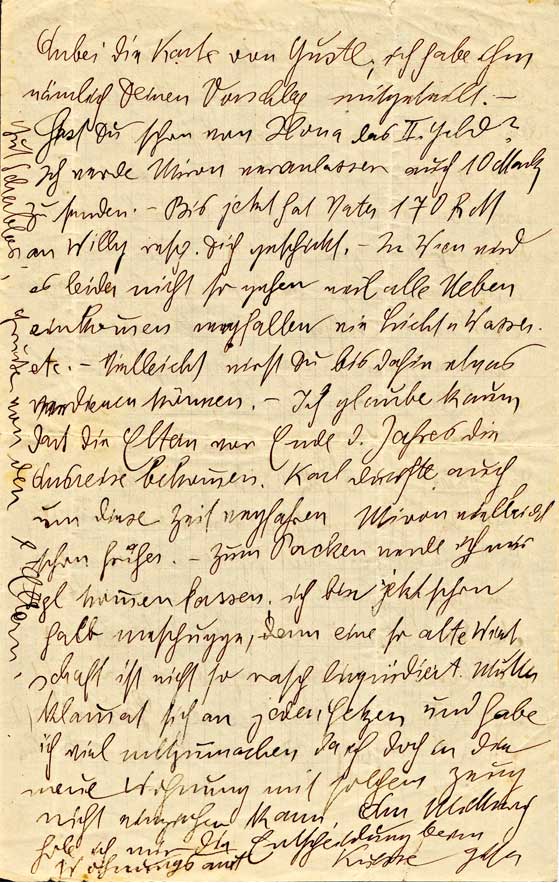 Anbei die Karte von Gustl, ich habe ihm
nämlich Deinen Vorschlag mitgeteilt. –
Hast Du schon von Ilona das II. Geld?
Ich werde Miron veranlassen auch 10 Mark
zu senden. – Bis jetzt hat Vater 170 RM
an Willy resp. Dich geschickt. – In Wien wird
es leider nicht so gehen weil alle Neben
einkommen wegfallen wie Licht u Wasser.
etc. – Vielleicht wirst Du bis dahin etwas
verdienen können. – Ich glaube kaum
dass die Eltern vor Ende d. Jahres die
Ausreise bekommen. Karl dürfte auch
um diese Zeit wegfahren Miron vielleicht
schon früher. – Zum Packen werde ich mir
kommen lassen, ich bin jetzt schon
halb meschugge, denn eine so alte Wirt
schaft ist nicht so rasch liquidiert. Mutter
klammert sich an jeden Fetzen und habe
ich viel mitzumachen da ich doch in die
neue Wohnung mit solchem Zeug
nicht einziehen kann. Am
hol ich mir die Entscheidung beim
Wohnungsamt Küsse
Grüsse von den Eltern.